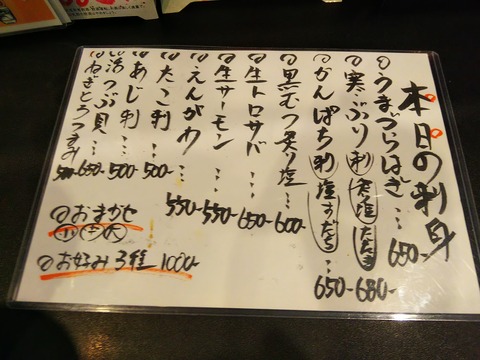 本日の刺身
うまづらはぎ…650-
寒ぶり(刺)(炙塩)(たたき)680-
かんぱち(刺)(塩すだち)650-
黒むつ炙り塩…600-
生トロサバ…650-
生サーモン…550-
えんがわ…550-
たこ刺…500-
あじ刺…500-
活つぶ貝…650-
ねぎとろつまみ
おまかせ
小 中 大
お好み3種 1000-